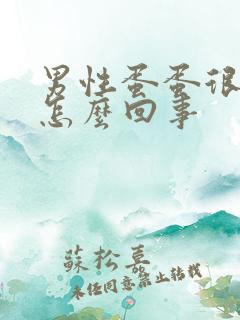 男性蛋蛋很
怎麽回事
蘇松喜
未经同意禁止转载